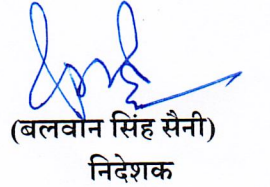 (बलवान सिंह सैनी)
निदेशक